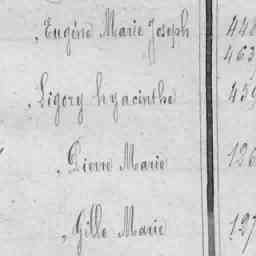 , Eugéne Marie Joseph 448
463
, Ligory hyacinthe 459
, Pierre Marie 126
, Gille Marie 127